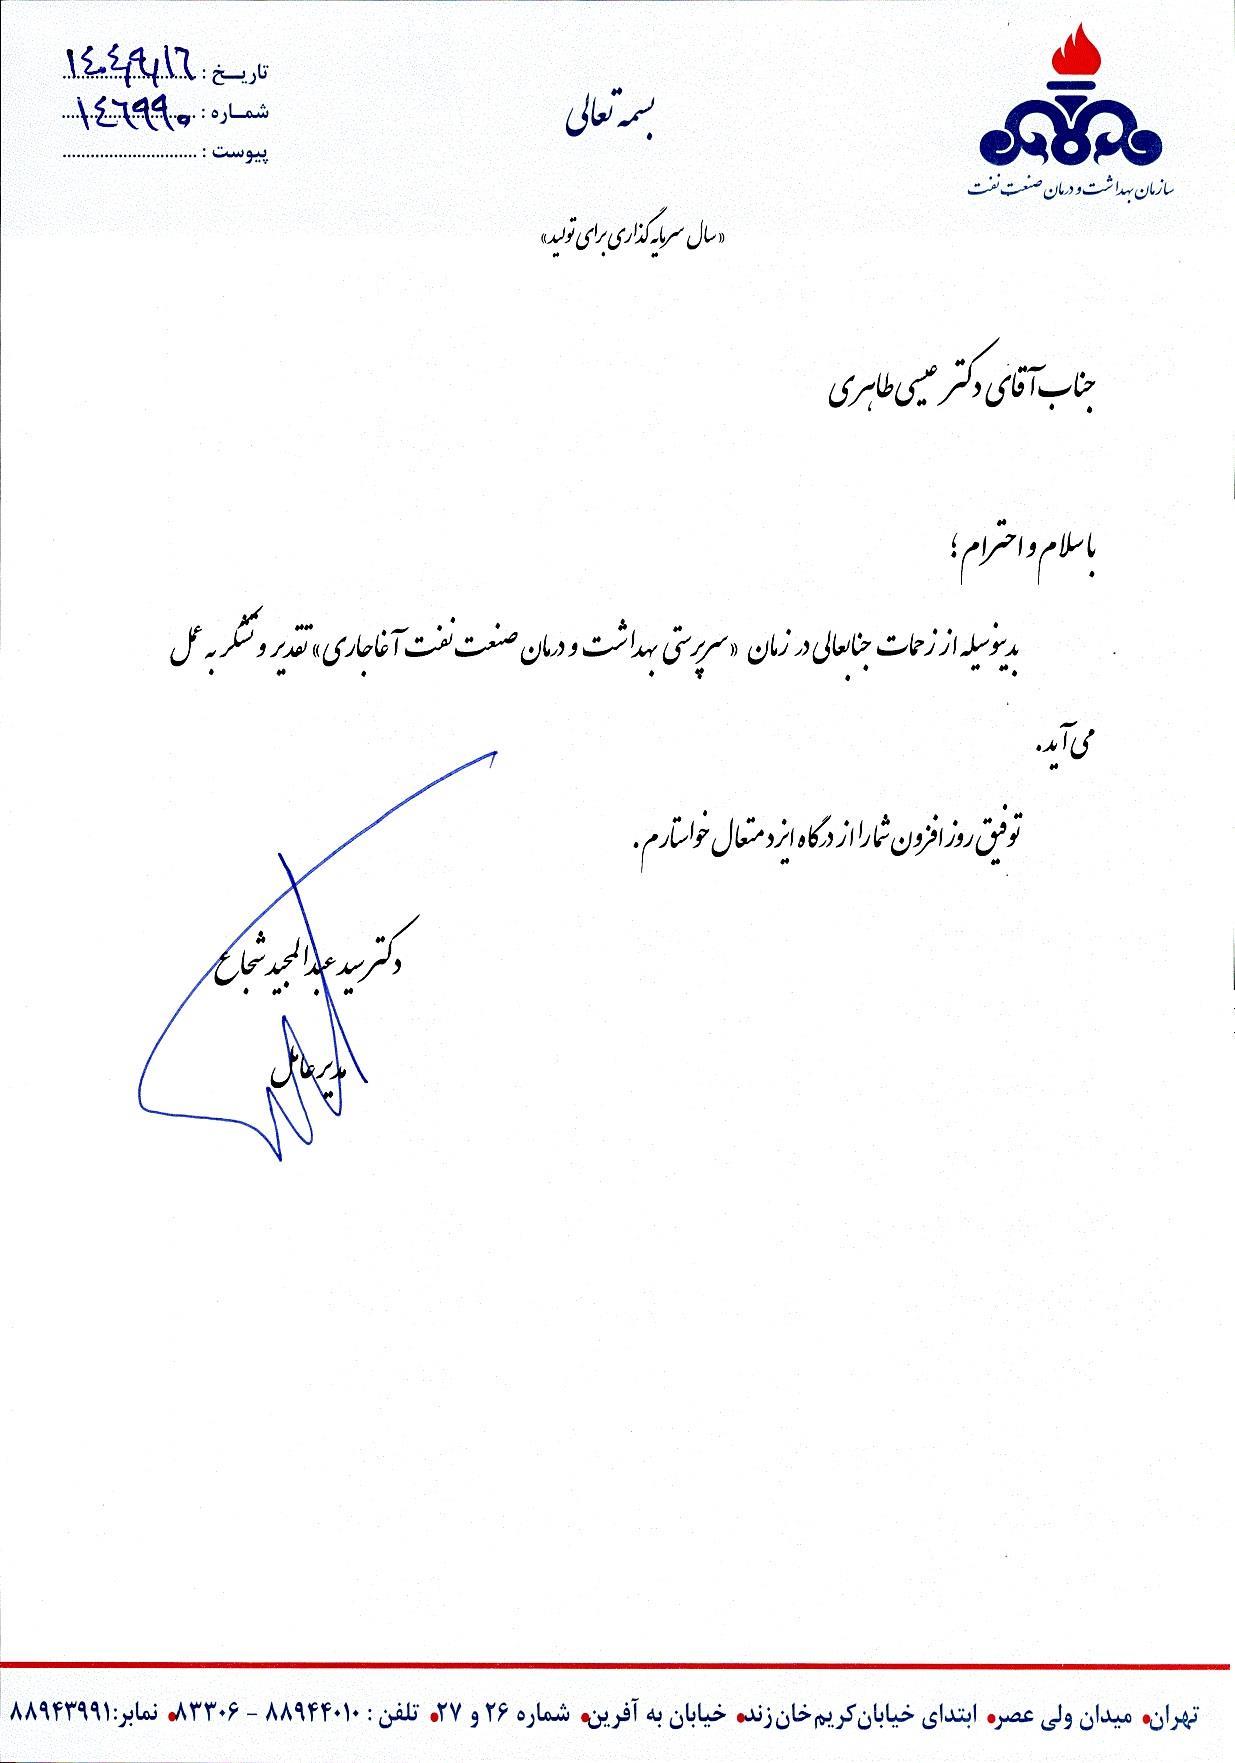 تاریخ : ۱۴۰۴/۹/۱۶
شماره : ۱۴۶۹۹۰
پیوست :
بسمه تعالی
سازمان بهداشت و درمان صنعت نفت
«سال سرمایه گذاری برای تولید»
جناب آقای دکتر عیسی طاهری
با سلام و احترام ؛
بدینوسیله از زحمات جنابعالی در زمان «سرپرستی بهداشت و درمان صنعت نفت آغاجاری» تقدیر و تشکر به عمل
می آید.
توفیق روز افزون شما را از درگاه ایزد متعال خواستارم.
دکتر سید عبدالمجید شجاع
مدیرعامل
تهران• میدان ولی عصر• ابتدای خیابان کریم خان زند• خیابان به آفرین• شماره ۲۶ و ۲۷• تلفن : ۸۸۹۴۴۰۱۰ - ۸۳۳۰۶• نمابر:۸۸۹۴۳۹۹۱